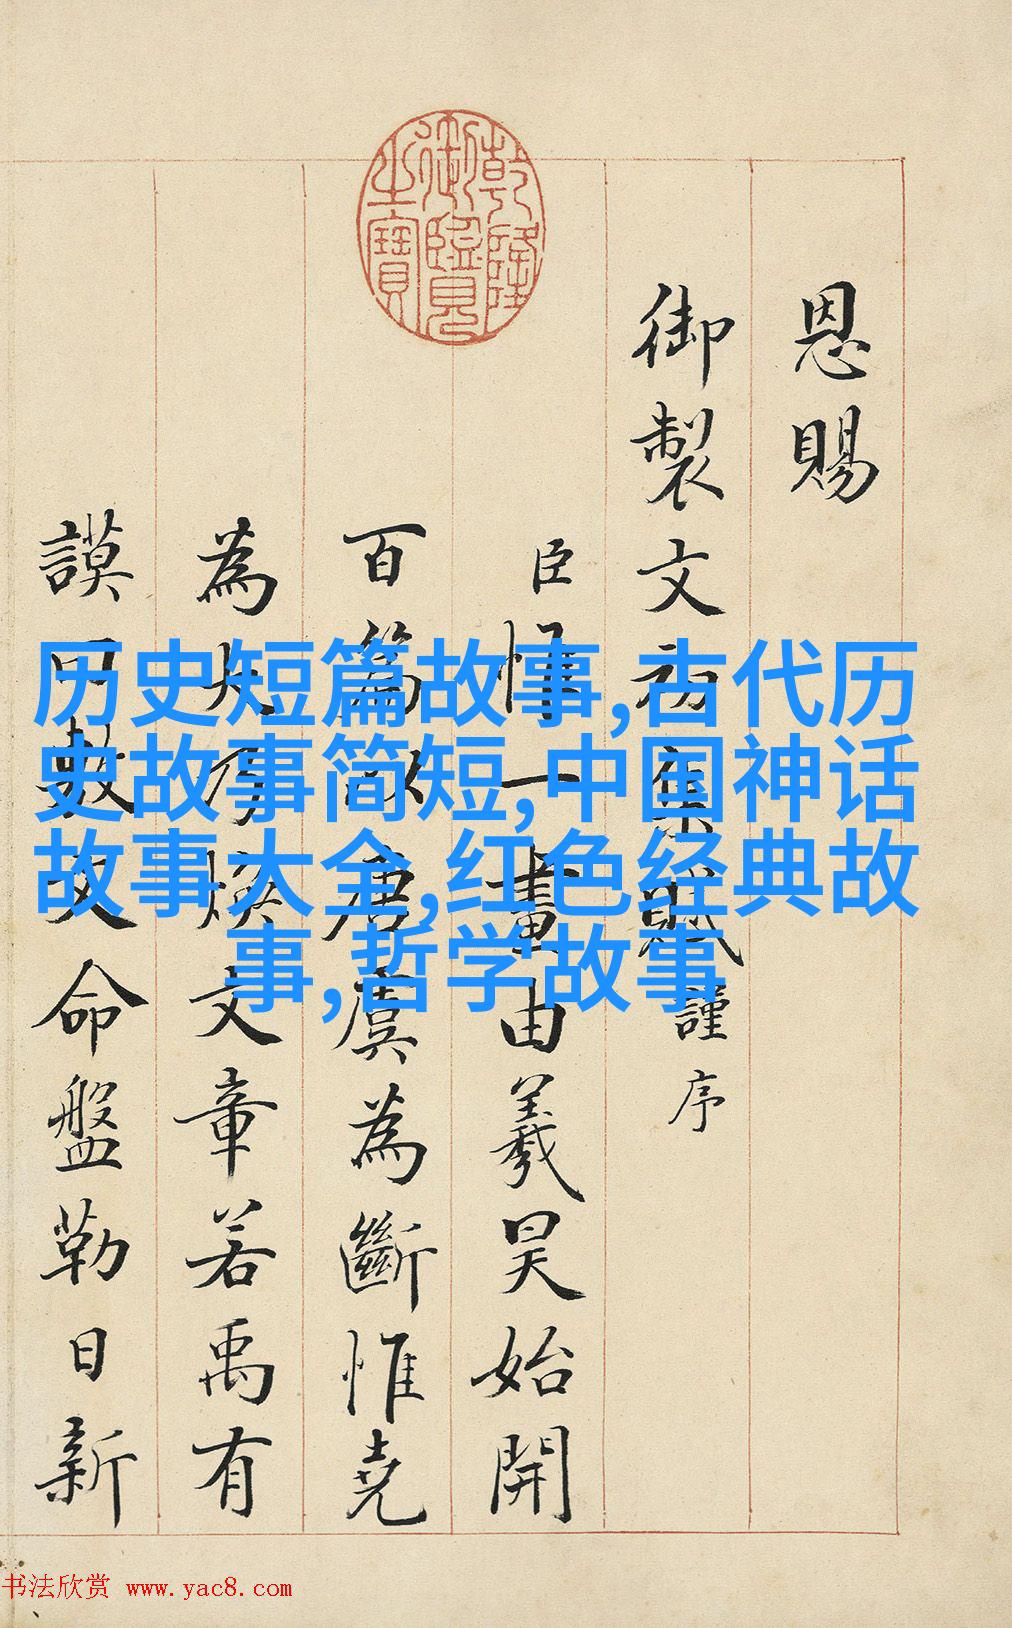 乾隆
御覽
之寶
恩賜
御製文初集賦謹序
臣惟一畫由羲昊始開
百篇以唐虞為斷惟堯
為大乃煥文章若禹有
謨曰敷文命盤勒日新
历史短篇故事,古代历
史故事简短,中国神话
故事大全,红色经典故
事,哲学故事
书法欣赏 www.yac8.com